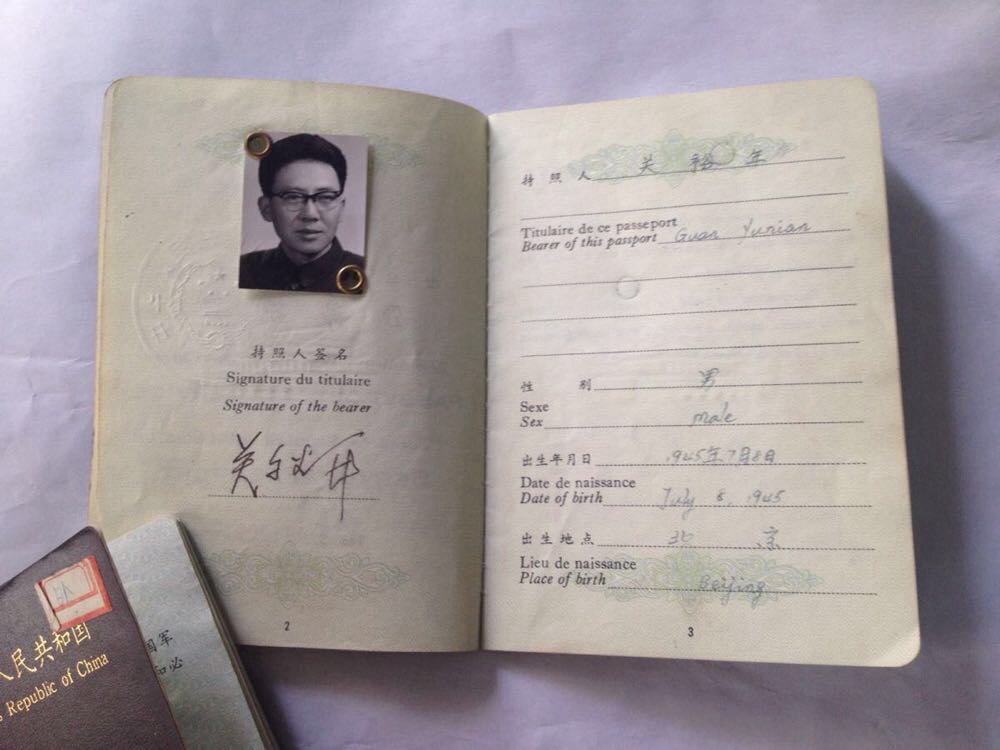 持照人签名
Signature du titulaire
Signature of the bearer
2
持照人 关裕年
Titulaire de ce passeport
Bearer of this passport Guan Yunian
性别 男
Sexe
Sex male
出生年月日 1945年7月8日
Date de naissance
Date of birth July 8, 1945
出生地点 北京
Lieu de naissance
Place of birth Beijing
3
人民共和国
Republic of China
国军
和必